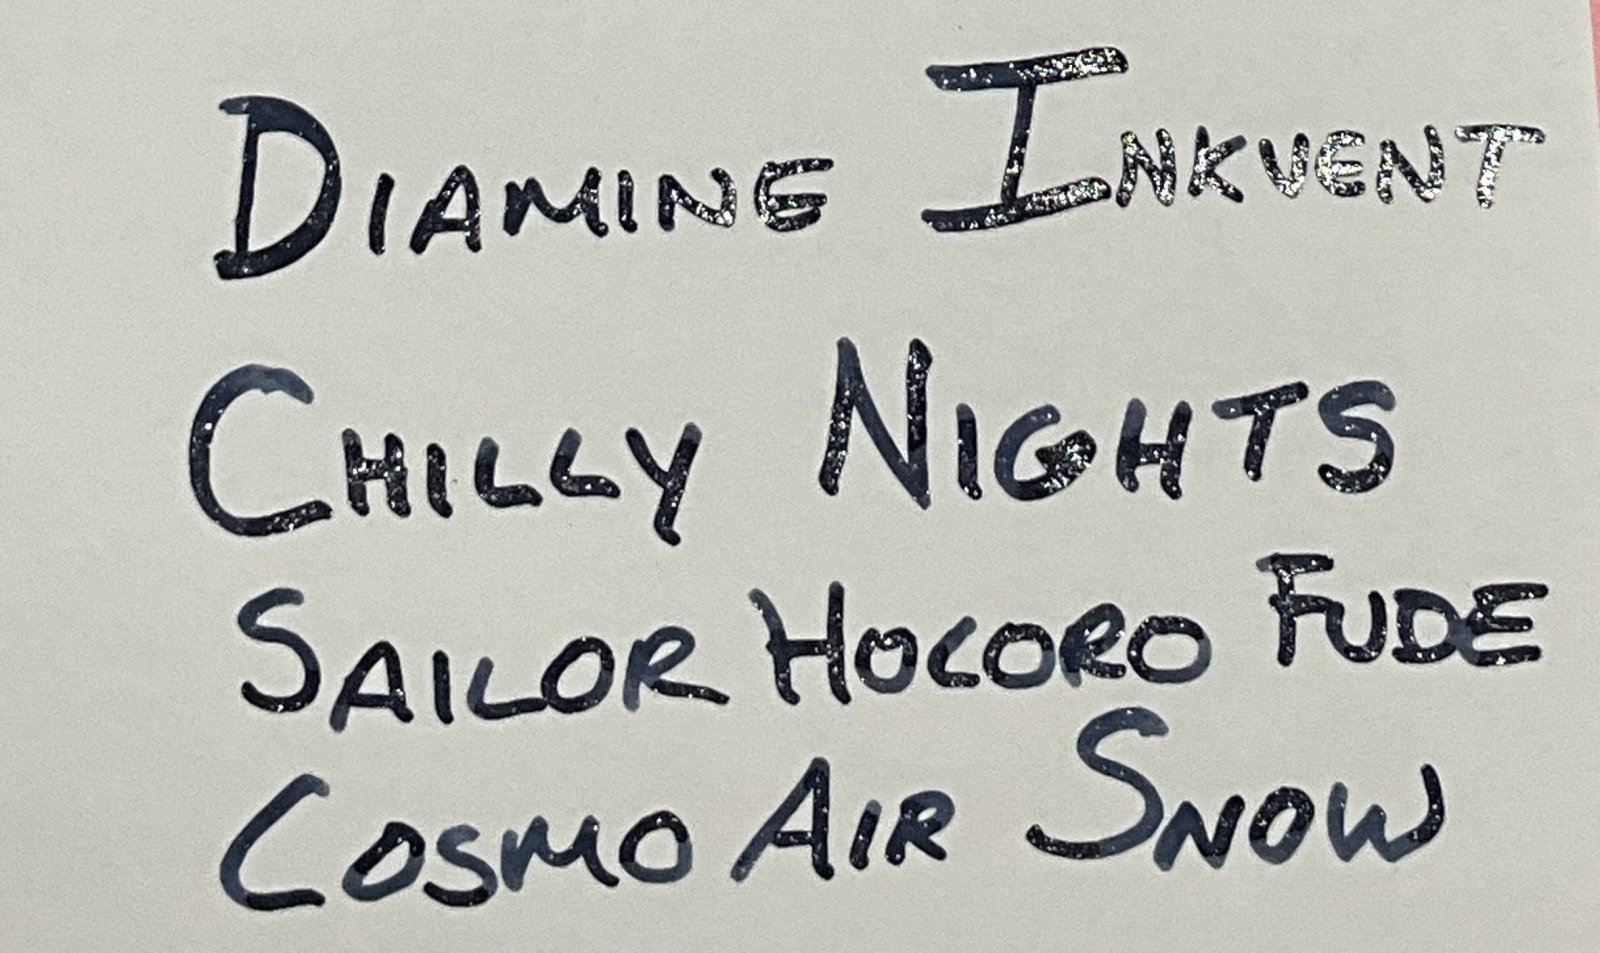 DIAMINE INKVENT
CHILLY NIGHTS
SAILOR HOCORO FUDE
COSMO AIR SNOW